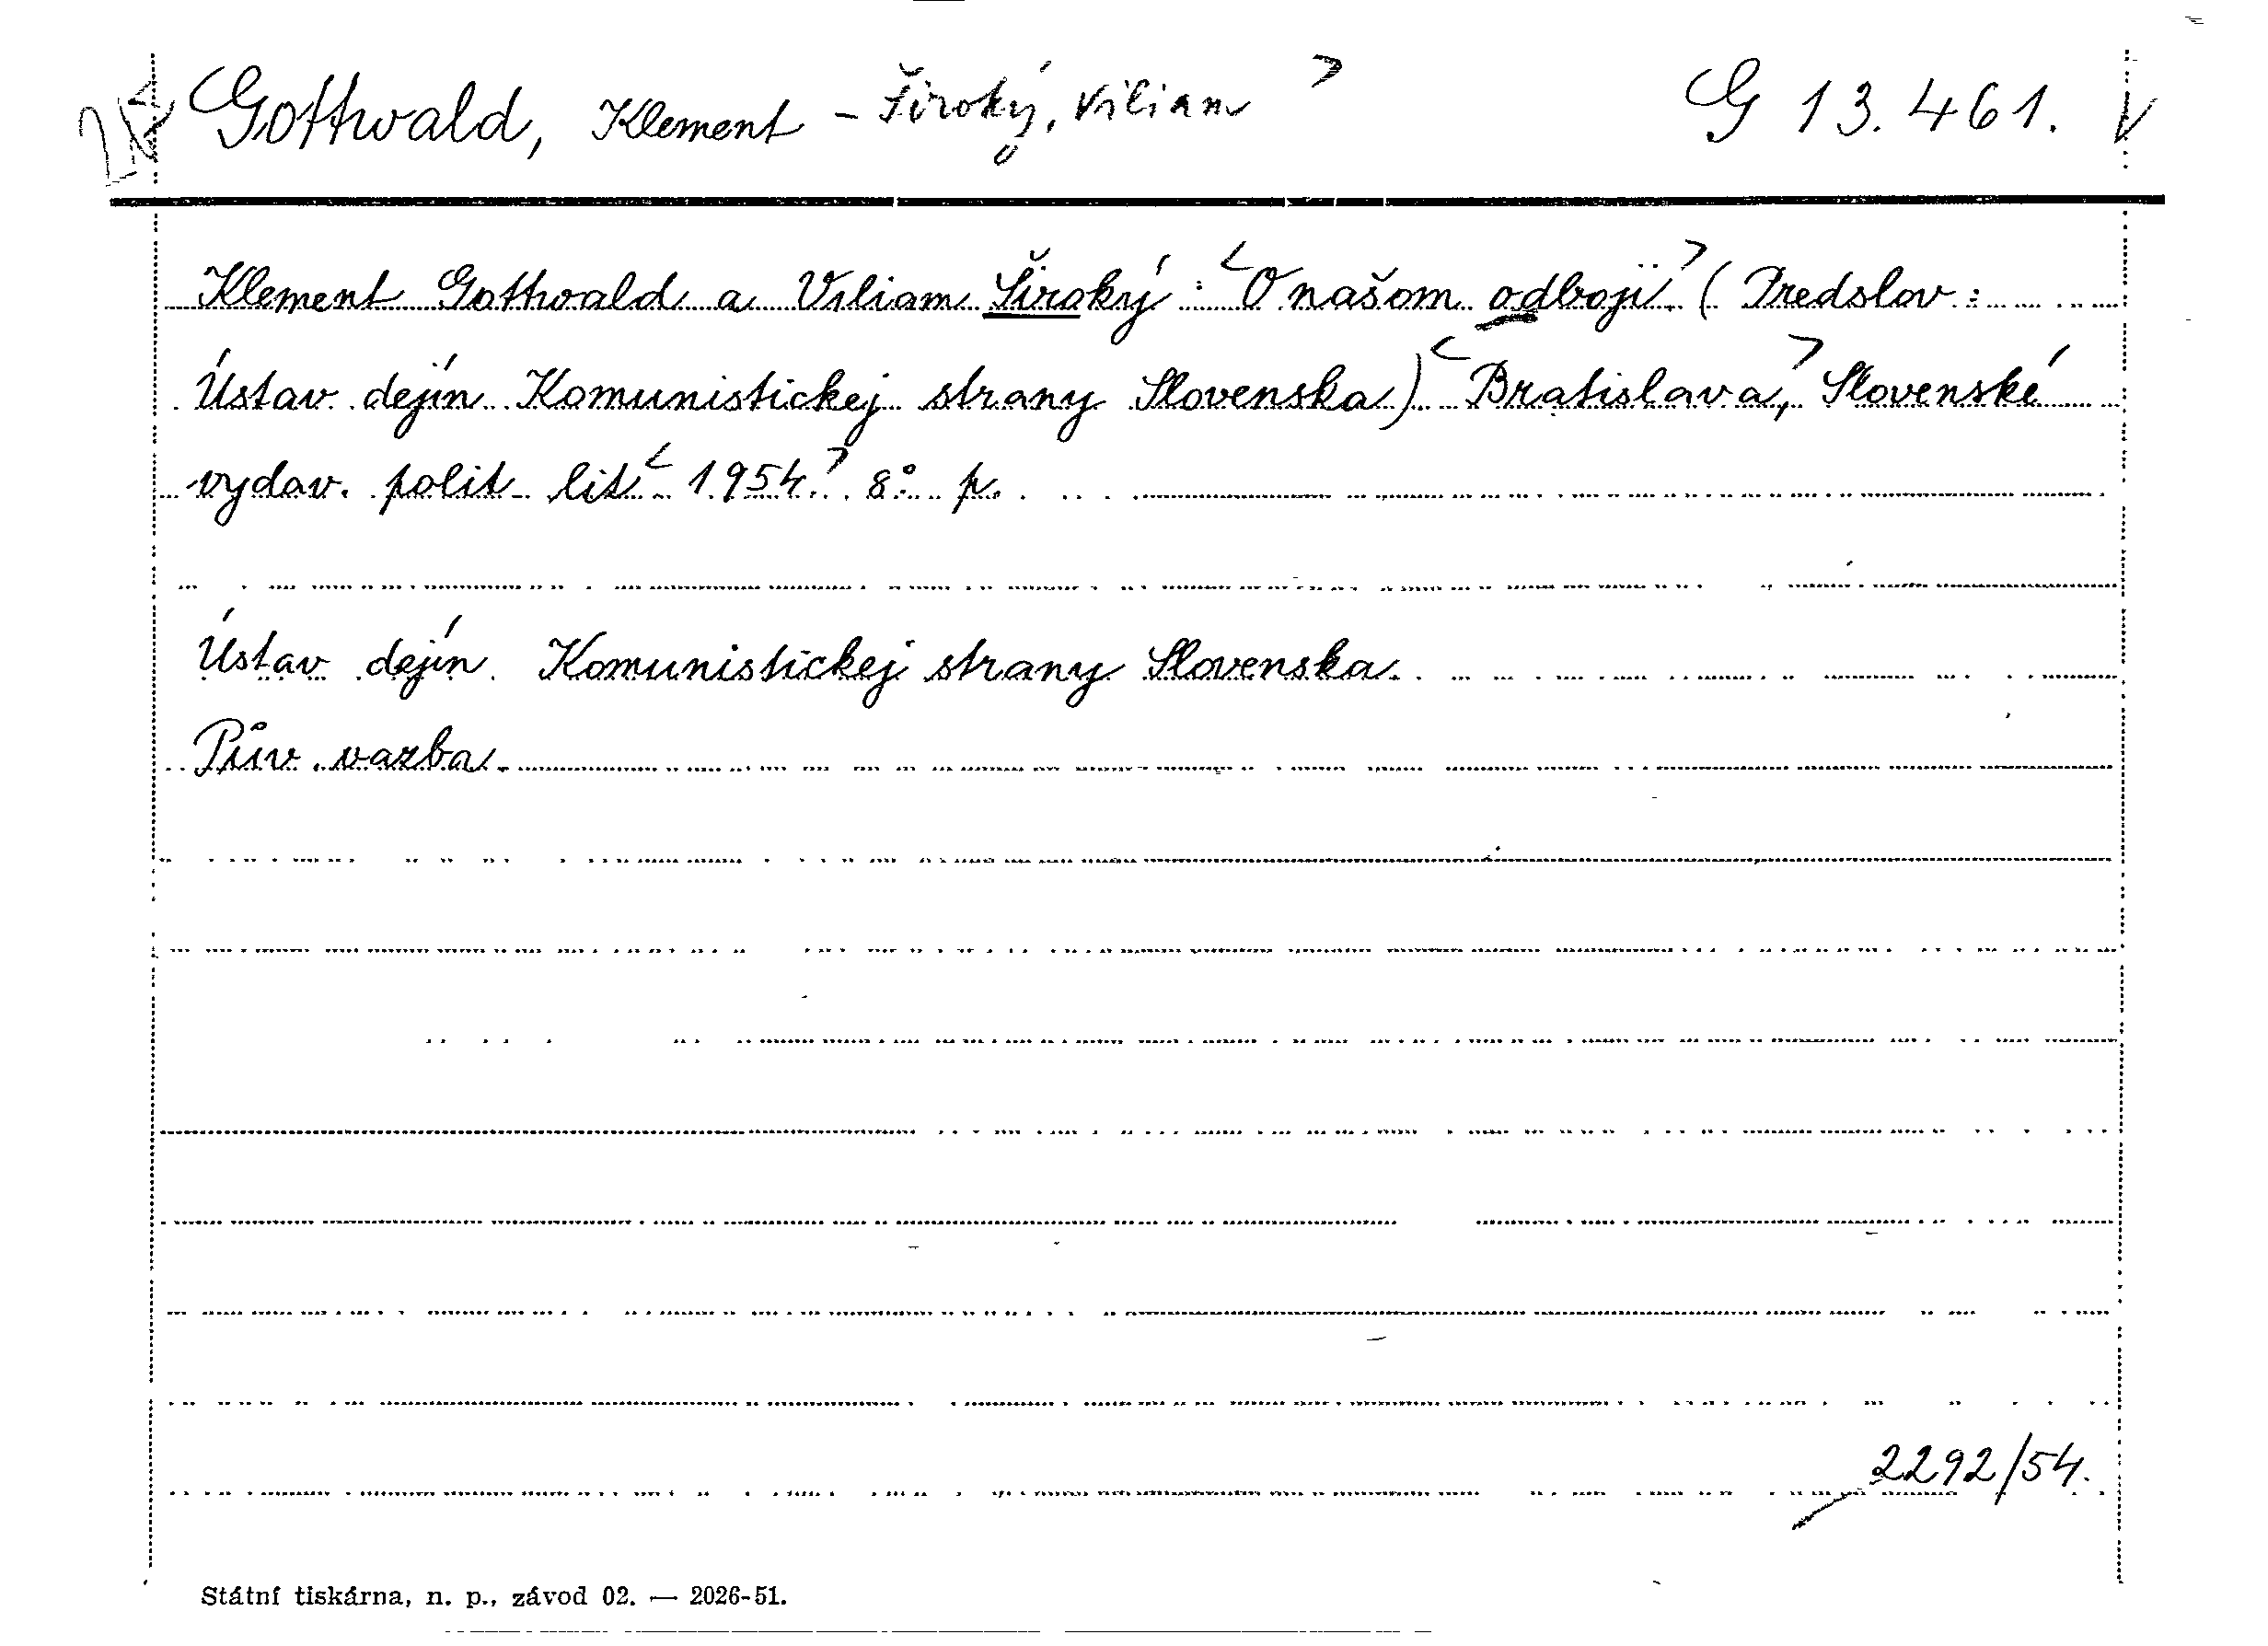 Gottwald, Klement – Široký, Viliam > G 13.461.
Klement Gottwald a Viliam Široký: <O našom odboji.> (Predslov:
Ústav dejín Komunistickej strany Slovenska) <Bratislava,> Slovenské
vydav. polit lit <1954.> 8° p.
Ústav dejín Komunistickej strany Slovenska.
Pův. vazba.
2292/54.
Státní tiskárna, n. p., závod 02. — 2026-51.